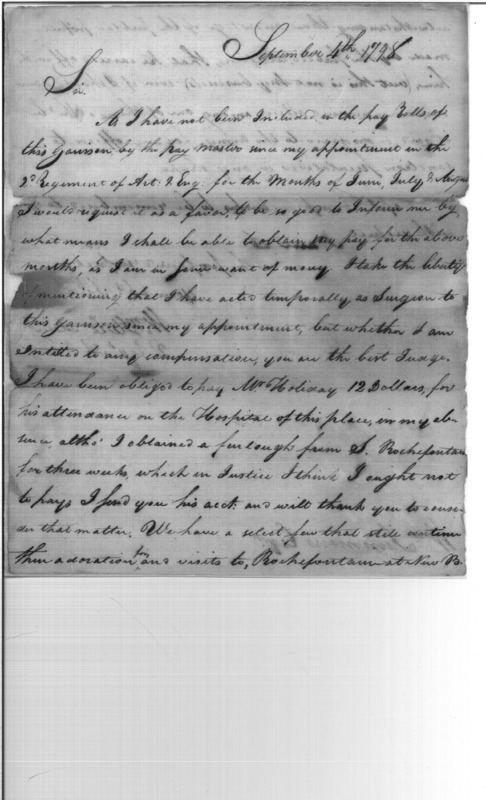 September 4th 1798
Sir.
As I have not been Included in the pay Rolls of
this Garrison by the pay Master since my appointment in the
2d Regiment of Art: & Eng. for the Months of June, July & Augus
I would request it as a favor, to be so good to Inform me by
what means I shall be able to obtain my pay for the above
months, as I am in some want of money. I take the liberty
of mentioning that I have acted temporally, as Surgeon to
this Garrison since my appointment, but whether I am
Intitled to any compensation, you are the best Judge.
I have been obliged to pay Mr Holiday 12 Dollars, for
his attendance on the Hospital of this place, in my ab-
sence, altho' I obtained a furlough from S. Rochefontain
for three weeks, which in Justice I think I ought not
to pay; I send you his acct: and will thank you to consi-
der that matter. We have a select few that still continue
their adoration to, and visits to, Rochefontain at New R.